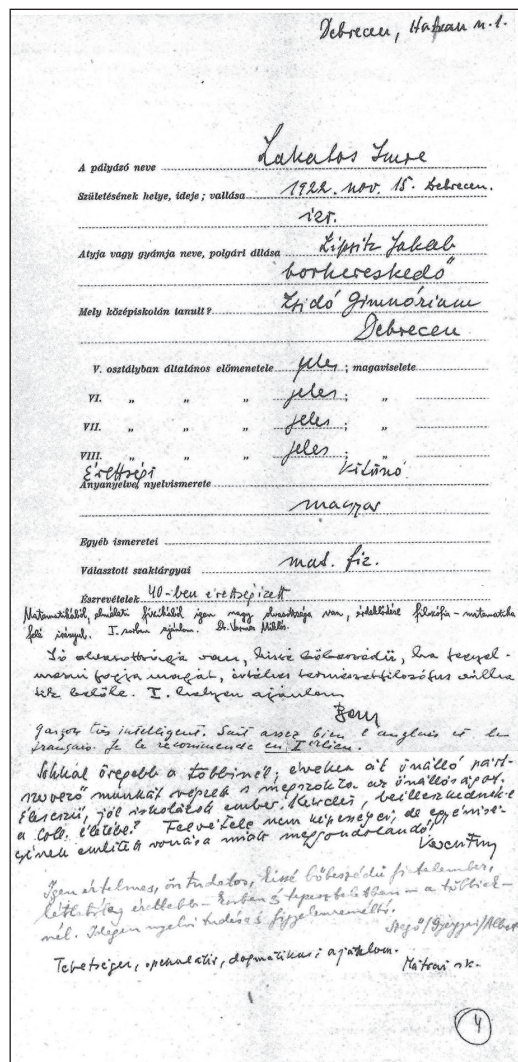 Debrecen, Hatvan u. 1.
A pályázó neve Lakatos Imre
Születésének helye, ideje; vallása 1922. nov. 15. Debrecen.
izr.
Atyja vagy gyámja neve, polgári állása Lipsitz Jakab
borkereskedő
Mely középiskolán tanult? Zsidó Gimnázium
Debrecen
V. osztályban általános előmenetele jeles; magaviselete
VI. „ „ „ jeles; „
VII. „ „ „ jeles; „
VIII. „ „ „ jeles; „
Érettségi kitünő
Anyanyelve, nyelvismerete
magyar
Egyéb ismeretei
Választott szaktárgyai mat. fiz.
Észrevételek 40-ben érettségizett
Matematikából, elméleti fizikából igen nagy olvasottsága van, érdeklődése filozófia-matematika
felé irányul. I. sorban ajánlom. Dr. Vermes Miklós.
Jó olvasottsága van, kissé bőbeszédű, ha fegyel-
mezni fogja magát, értékes természetfilozófus válha-
tik belőle. I. helyen ajánlom
Garçon très intelligent. Sait assez bien l'anglais et le
français. Je le recommende en I
Sokkal öregebb a többinél; éveken át önálló párt-
szervező munkát végzett s megszokta az önállóságot.
Éleseszü, jól iskolázott ember. Kérdés, beilleszkednék-e
a Coll. életébe? Felvétele nem képességei, de egyénisé-
gének említett vonása miatt meggondolandó!
Keresztury
Igen értelmes, öntudatos, kissé bőbeszédű fiatalember,
láthatólag érettebb – korban s tapasztalatban – a többiek-
nél. Idegen nyelvi tudása figyelemreméltó.
Szegő/Györgyi/Albert
Tehetséges, spekulatív, dogmatikus; ajánlom.
Mátrai sk.
4